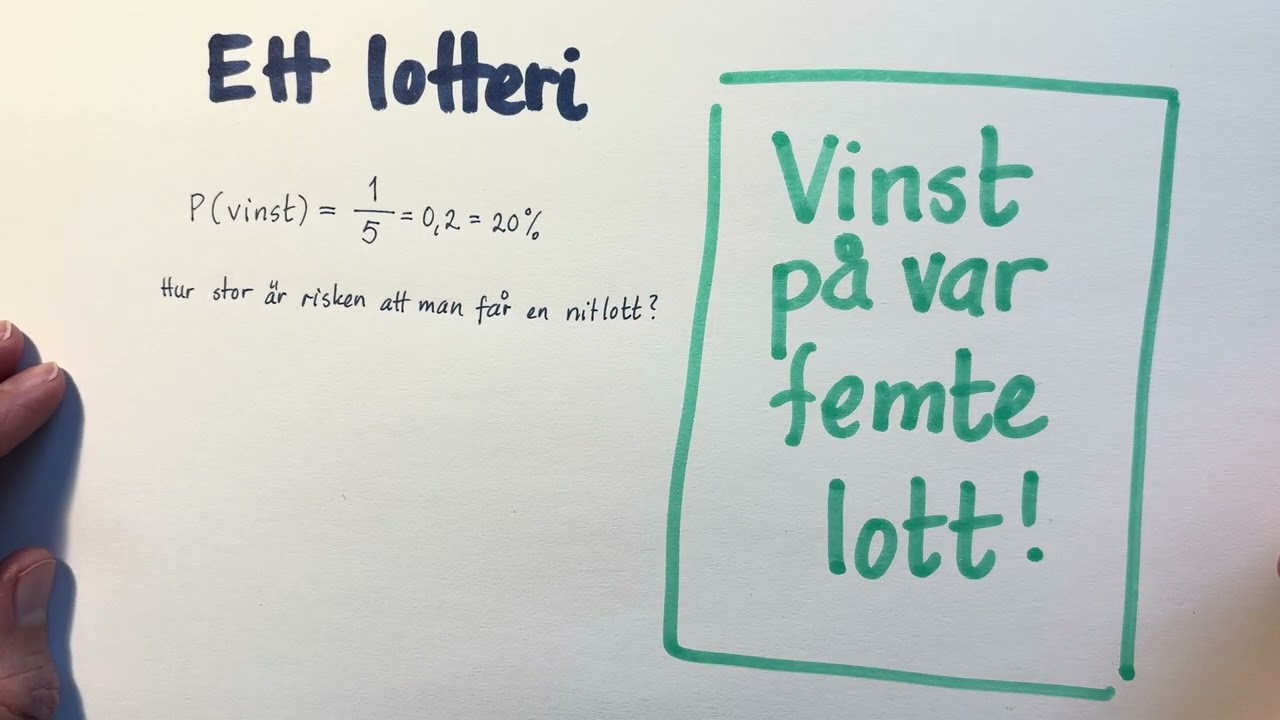 Ett lotteri
P(vinst) = 1/5 = 0,2 = 20%
Hur stor är risken att man får en nitlott?
Vinst
på var
femte
lott!